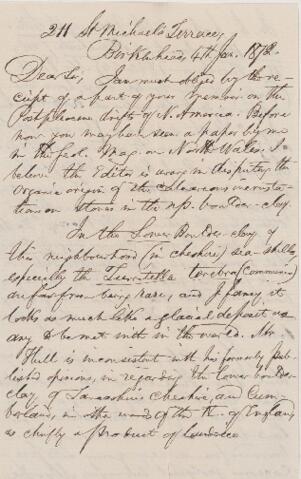 211 St Michael's Terrace,
Birkenhead, 4th Jan. 1872.
Dear Sir, I am much obliged by the re-
ceipt of a part of your Memoir on the
Post-pliocene drifts of N. America. Before
now you may have seen a paper by me
in the Geol. Mag. on North Wales. I
believe the Editor is wrong in disputing the
organic origin of the calcareous incrusta-
tions on stones in the up. boulder-clay.
In the Lower Boulder-clay of
this neighbourhood (in Cheshire) sea-shells,
especially the Turritella terebra (communis)
are far from being rare, and I fancy it
looks as much like a glacial deposit as
any to be met with in the world. Mr
Hull is inconsistent with his formerly pub-
lished opinions, in regarding the lower boulder
clay of Lancashire Cheshire, and Cum-
berland, in other words of the N. of England,
as chiefly a product of land-ice